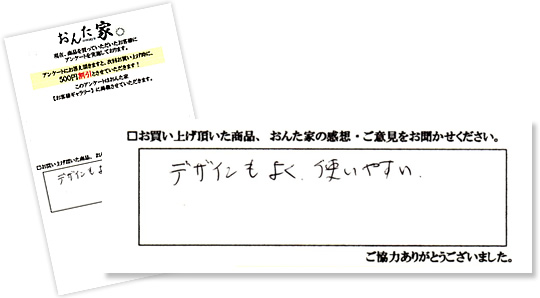 おんた家
現在、商品を買っていただいたお客様に
アンケートを実施しております。
アンケートにお答え頂きますと、次回お買い上げ時に、
500円割引とさせていただきます!
このアンケートはおんた家
【お客様ギャラリー】に掲載させていただきます。
□お買い上げ頂いた商品、おん
デザインもよ
□お買い上げ頂いた商品、おんた家の感想・ご意見をお聞かせください。
デザインもよく、使いやすい.
ご協力ありがとうございました。